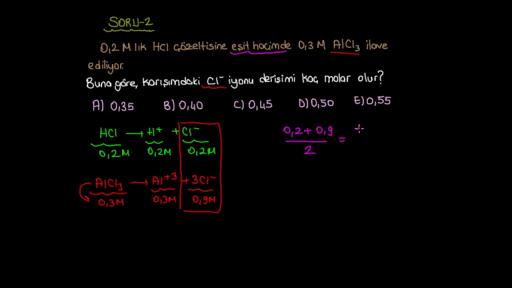 SORU-2
0,2 M lık HCl çözeltisine eşit hacimde 0,3 M AlCl₃ ilave
ediliyor.
Buna göre, karışımdaki Cl⁻ iyonu derişimi kaç molar olur?
A) 0,35 B) 0,40 C) 0,45 D) 0,50 E) 0,55
HCl → H⁺ + Cl⁻
0,2M 0,2M 0,2M
0,2 + 0,9
2 =
AlCl₃ → Al⁺³ + 3Cl⁻
0,3M 0,3M 0,9M